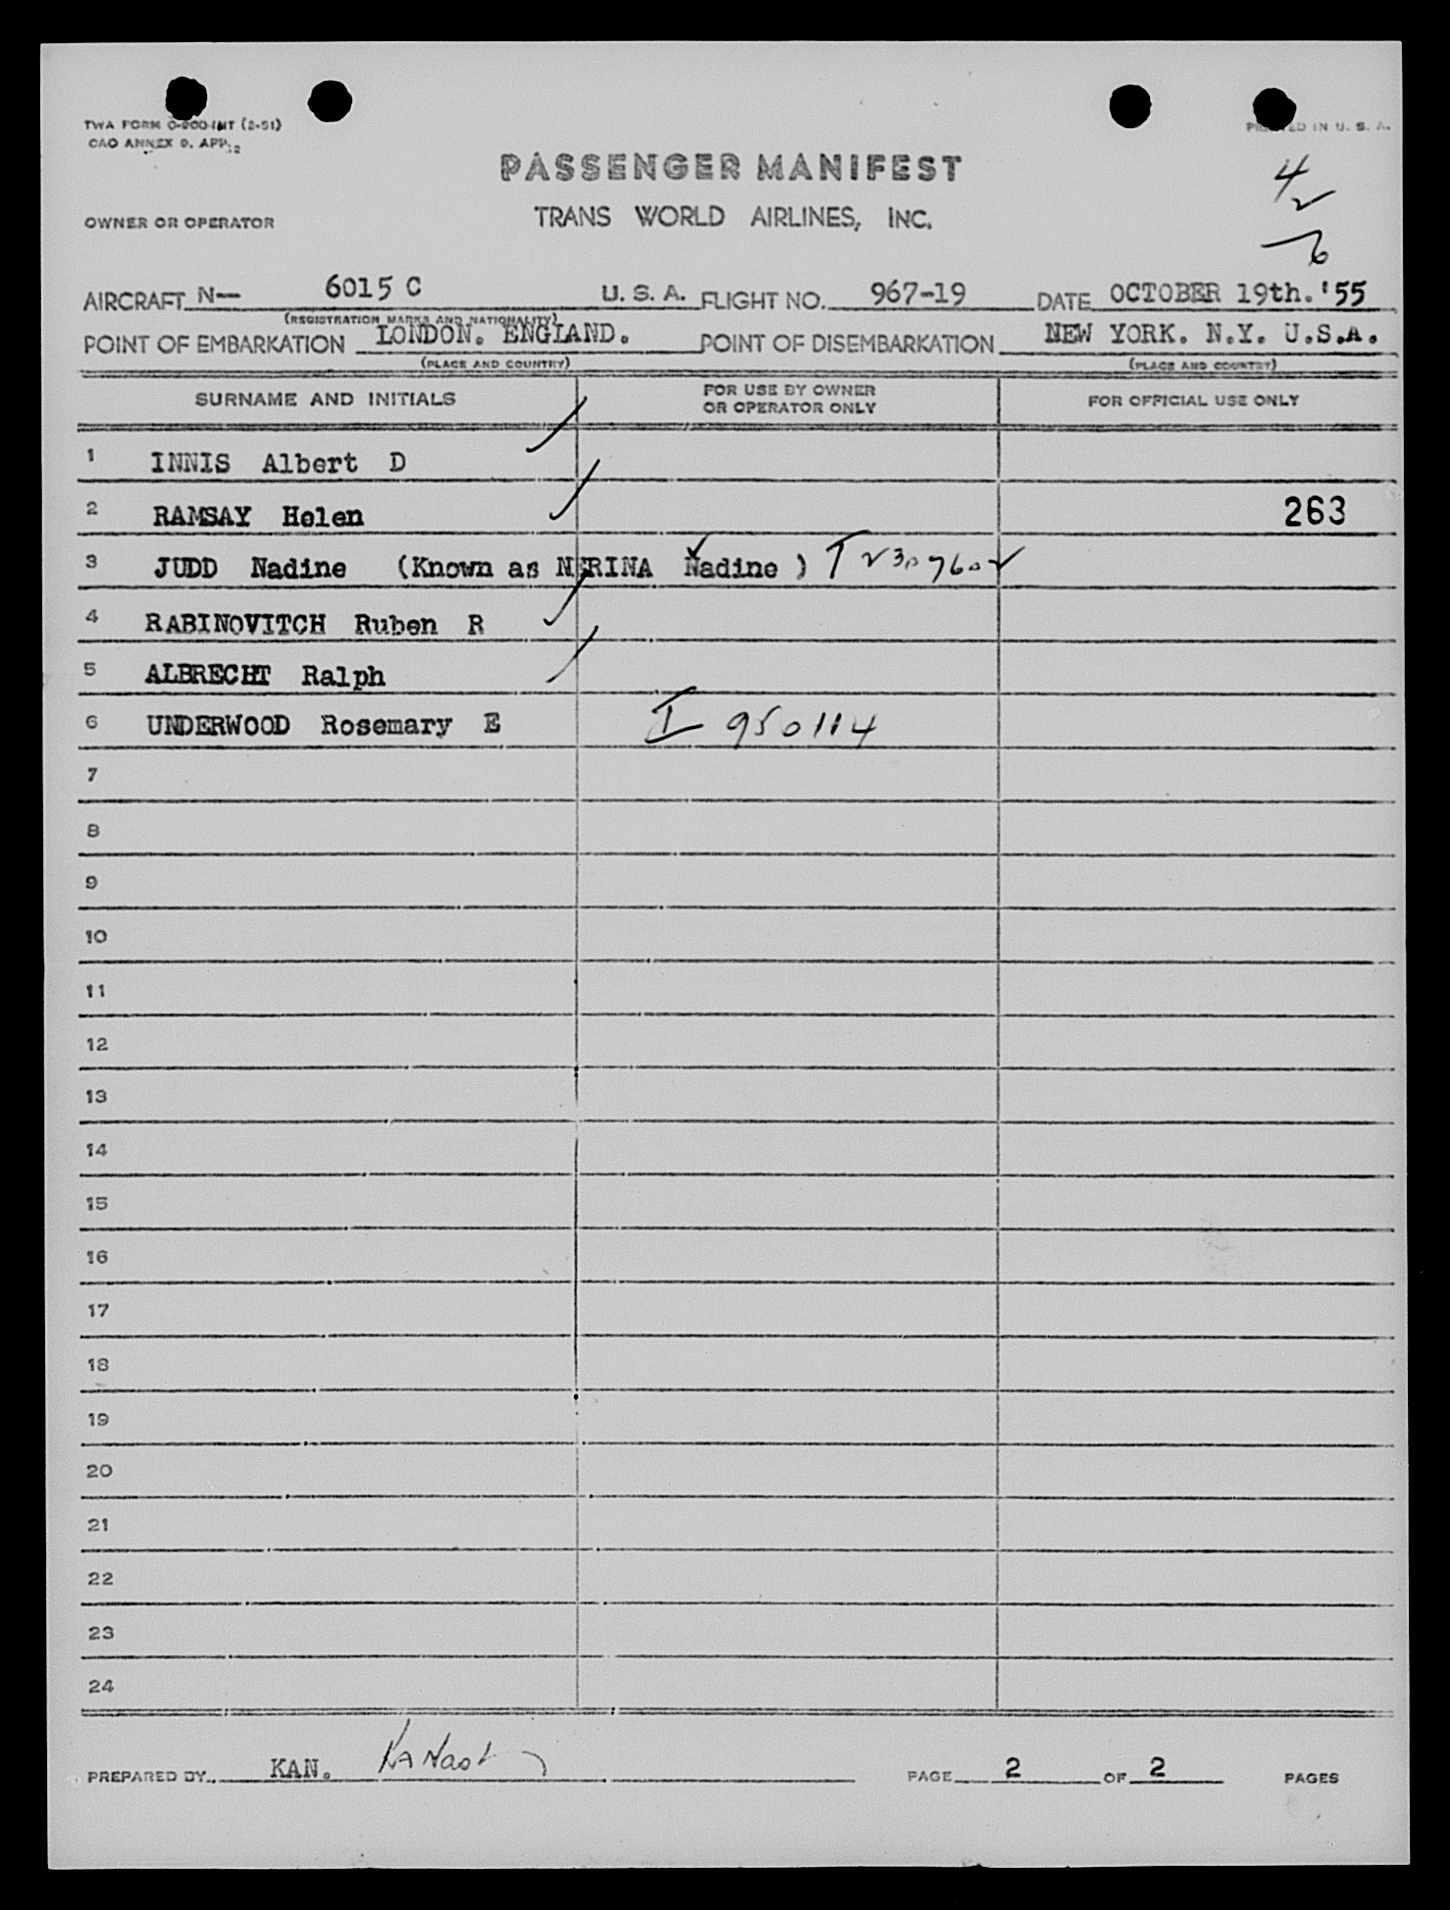 TWA FORM O-200-INT (2-51)
CAO ANNEX 9. APP. 2
IN U. S. A.
PASSENGER MANIFEST
4
2
6
OWNER OR OPERATOR
TRANS WORLD AIRLINES, INC.
AIRCRAFT N— 6015 C U. S. A. FLIGHT NO. 967-19 DATE OCTOBER 19th.'55
(REGISTRATION MARKS AND NATIONALITY)
POINT OF EMBARKATION LONDON. ENGLAND. POINT OF DISEMBARKATION NEW YORK. N.Y. U.S.A.
(PLACE AND COUNTRY) (PLACE AND COUNTRY)
SURNAME AND INITIALS FOR USE BY OWNER OR OPERATOR ONLY FOR OFFICIAL USE ONLY
1 INNIS Albert D
2 RAMSAY Helen 263
3 JUDD Nadine (Known as NERINA Nadine )
4 RABINOVITCH Ruben R
5 ALBRECHT Ralph
6 UNDERWOOD Rosemary E I 950114
7
8
9
10
11
12
13
14
15
16
17
18
19
20
21
22
23
24
PREPARED BY KAN. PAGE 2 OF 2 PAGES